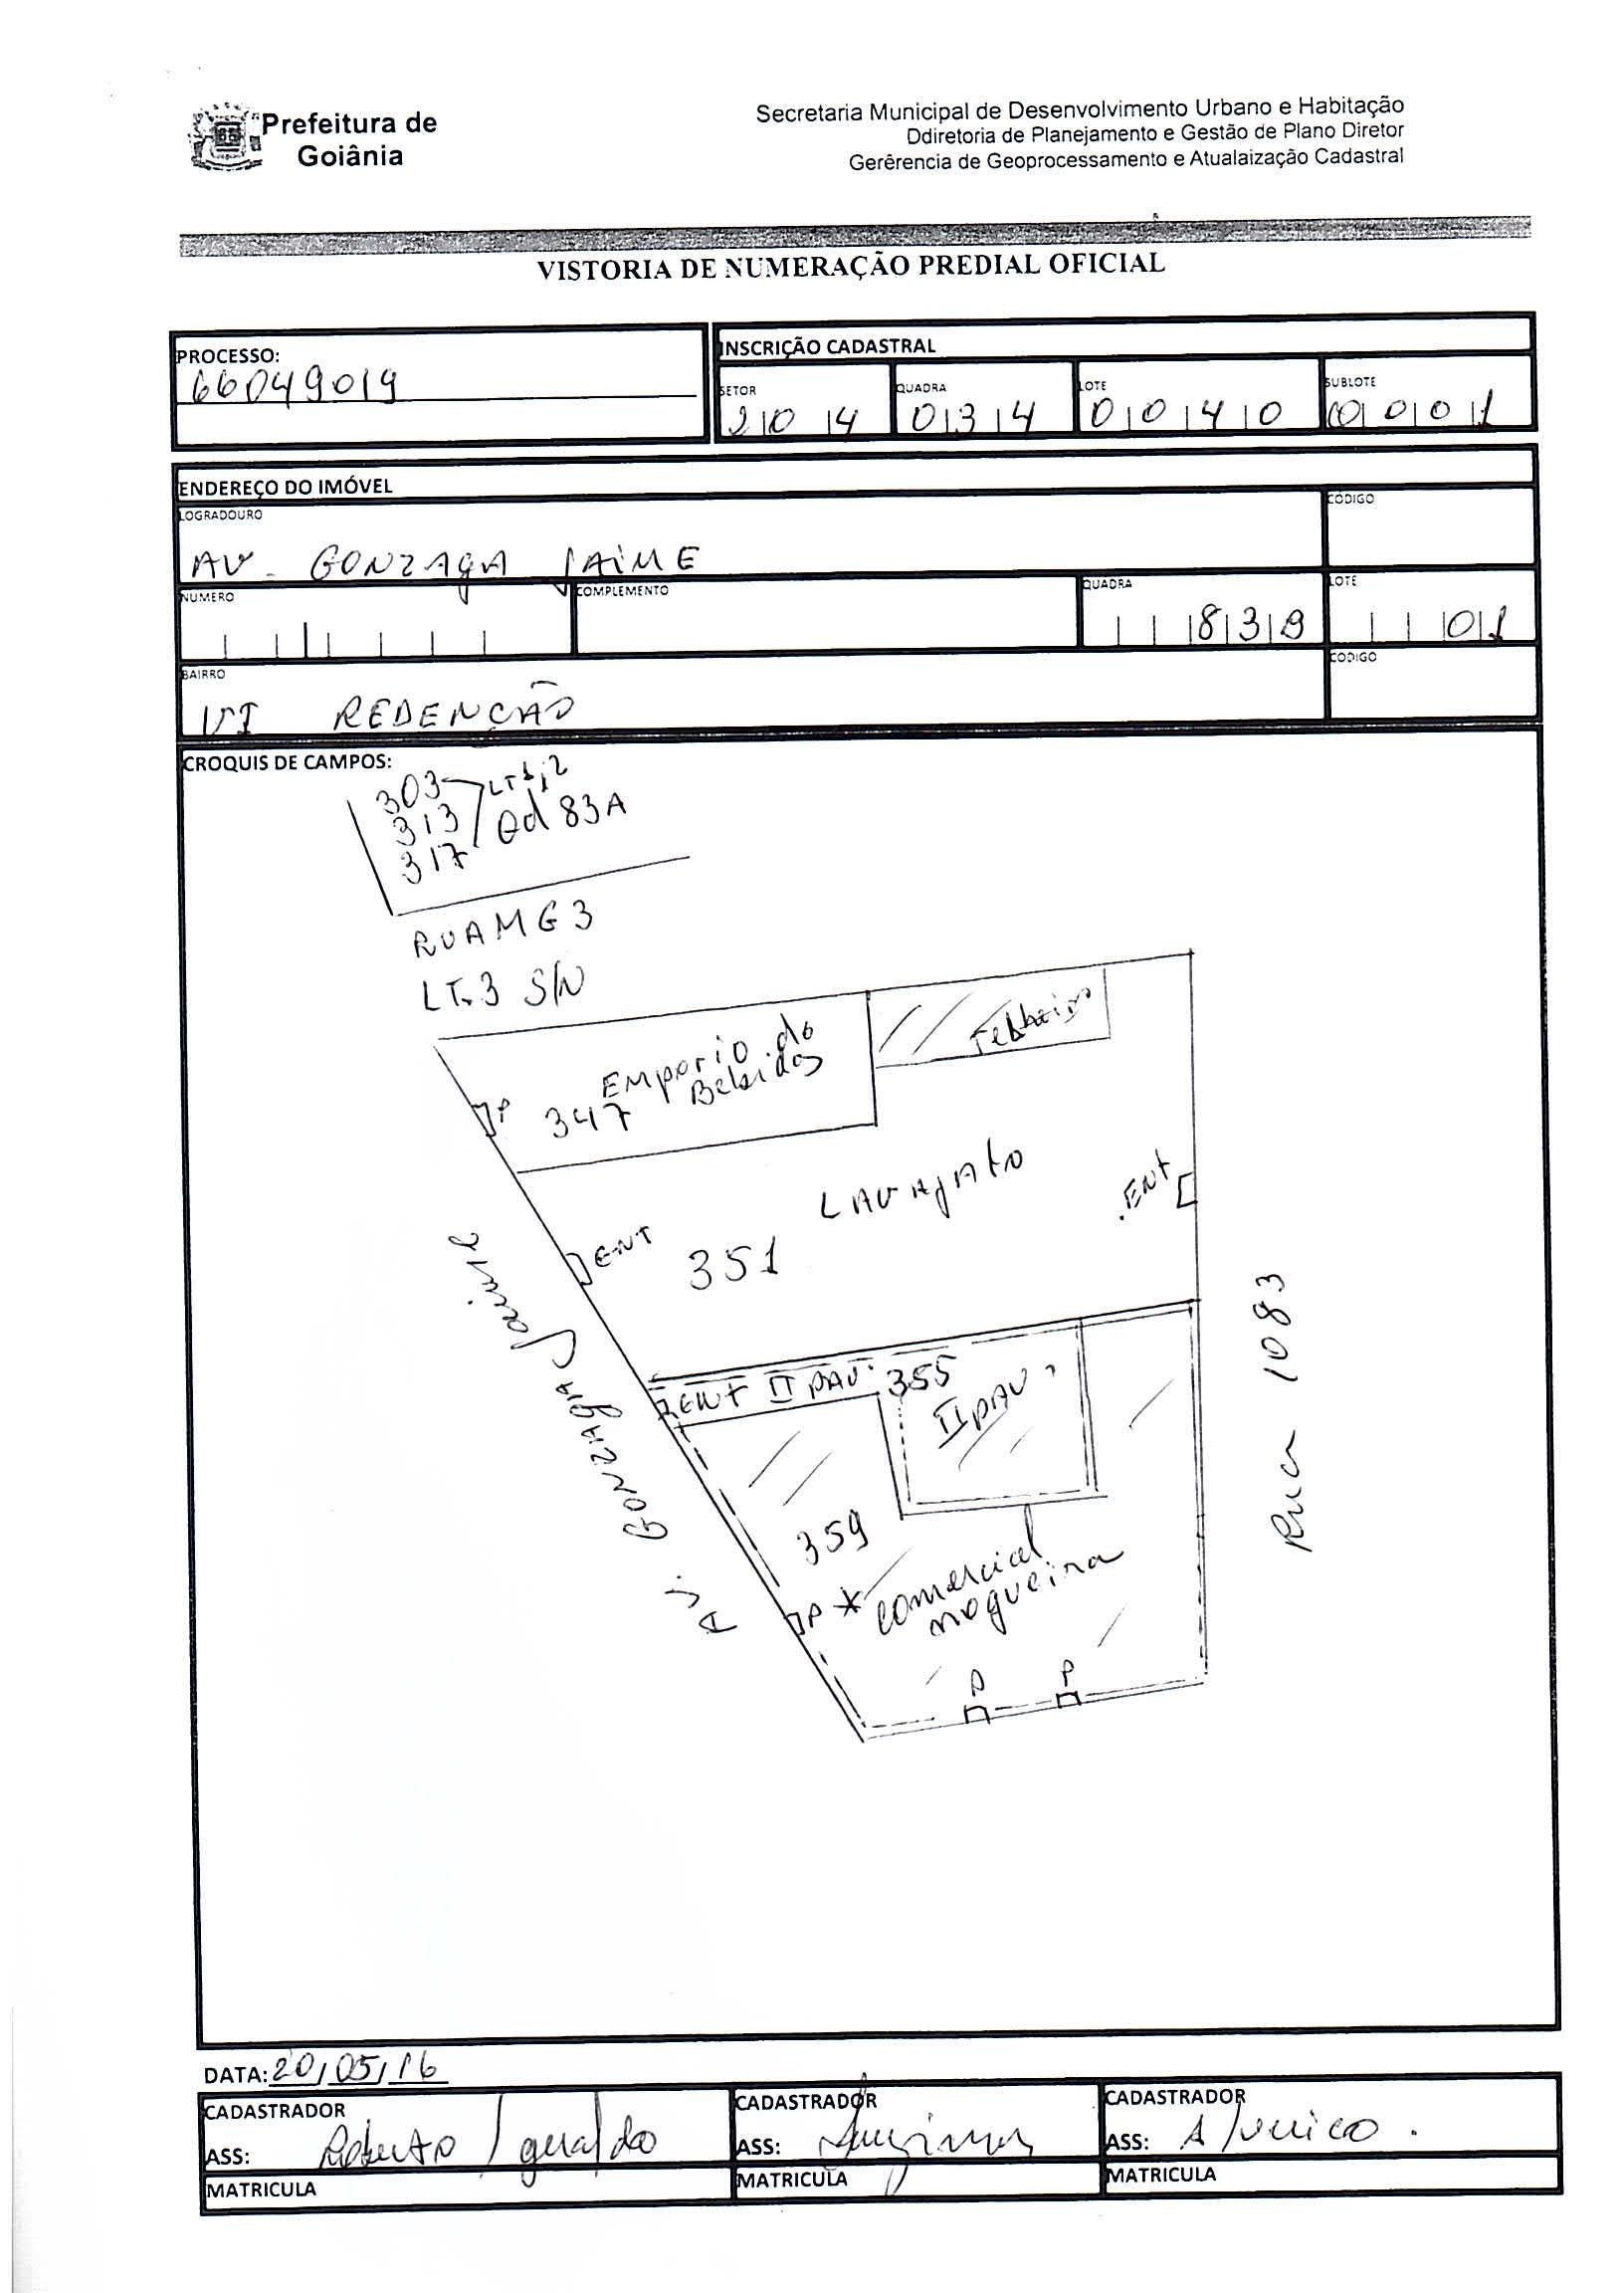 Prefeitura de
Goiânia
Secretaria Municipal de Desenvolvimento Urbano e Habitação
Ddiretoria de Planejamento e Gestão de Plano Diretor
Gerêrencia de Geoprocessamento e Atualaização Cadastral
VISTORIA DE NUMERAÇÃO PREDIAL OFICIAL
PROCESSO:
66049019
INSCRIÇÃO CADASTRAL
SETOR QUADRA LOTE SUBLOTE
204 034 0040 0001
ENDEREÇO DO IMÓVEL
LOGRADOURO CÓDIGO
AV. GONZAGA JAIME
NUMERO COMPLEMENTO QUADRA LOTE
83B 01
BAIRRO CODIGO
VI REDENÇÃO
CROQUIS DE CAMPOS:
303 LT 1,2
313 Qd 83A
317
RUA MG3
LT.3 S/N
Emporio de
Bebidas
347
Telheiro
P
Lavajato
.ENT
ENT
351
Av. GONZAGA Jaime
Rua 1083
ENT II PAV. 355
II PAV.
359
P * comercial
nogueira
P P
DATA: 20/05/16
CADASTRADOR CADASTRADOR CADASTRADOR
ASS: Roberto / geraldo ASS: ASS:
MATRICULA MATRICULA MATRICULA